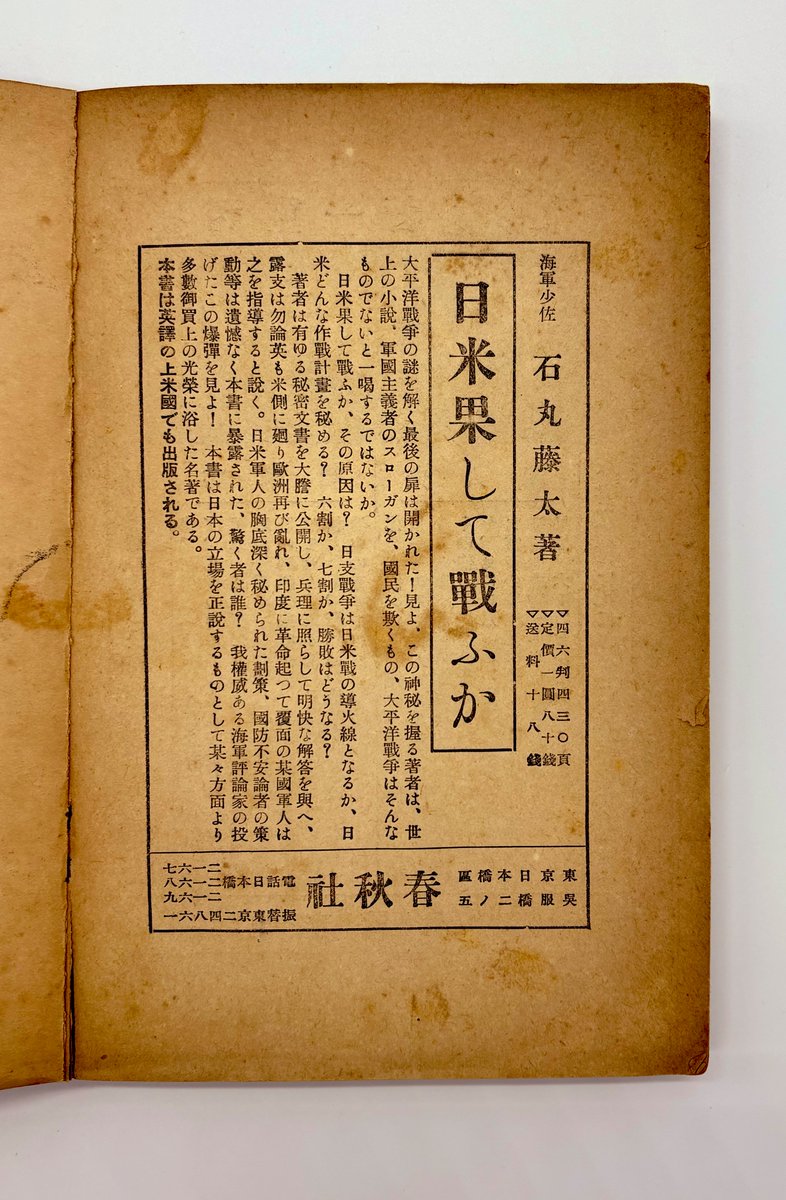 海軍少佐 石丸藤太著
▽四六判四三〇頁
▽定價一圓八十錢
▽送料十八錢
日米果して戰ふか
大平洋戰爭の謎を解く最後の扉は開かれた!見よ、この神秘を握る著者は、世
上の小說、軍國主義者のスローガンを、國民を欺くもの、大平洋戰爭はそんな
ものでないと一喝するではないか。
日米果して戰ふか、その原因は? 日支戰爭は日米戰の導火線となるか、日
米どんな作戰計畫を秘める? 六割か、七割か、勝敗はどうなる?
著者は有ゆる秘密文書を大膽に公開し、兵理に照らして明快な解答を與へ、
露支は勿論英も米側に廻り歐洲再び亂れ、印度に革命起つて覆面の某國軍人は
之を指導すると說く。日米軍人の胸底深く秘められた劃策、國防不安論者の策
動等は遺憾なく本書に暴露された、驚く者は誰? 我權威ある海軍評論家の投
げたこの爆彈を見よ! 本書は日本の立場を正說するものとして某々方面より
多數御買上の光榮に浴した名著である。
本書は英譯の上米國でも出版される。
東京日本橋區
吳服橋二ノ五
春秋社
電話日本橋
二二二
一一一
六六六
七八九
振替東京二四八六一